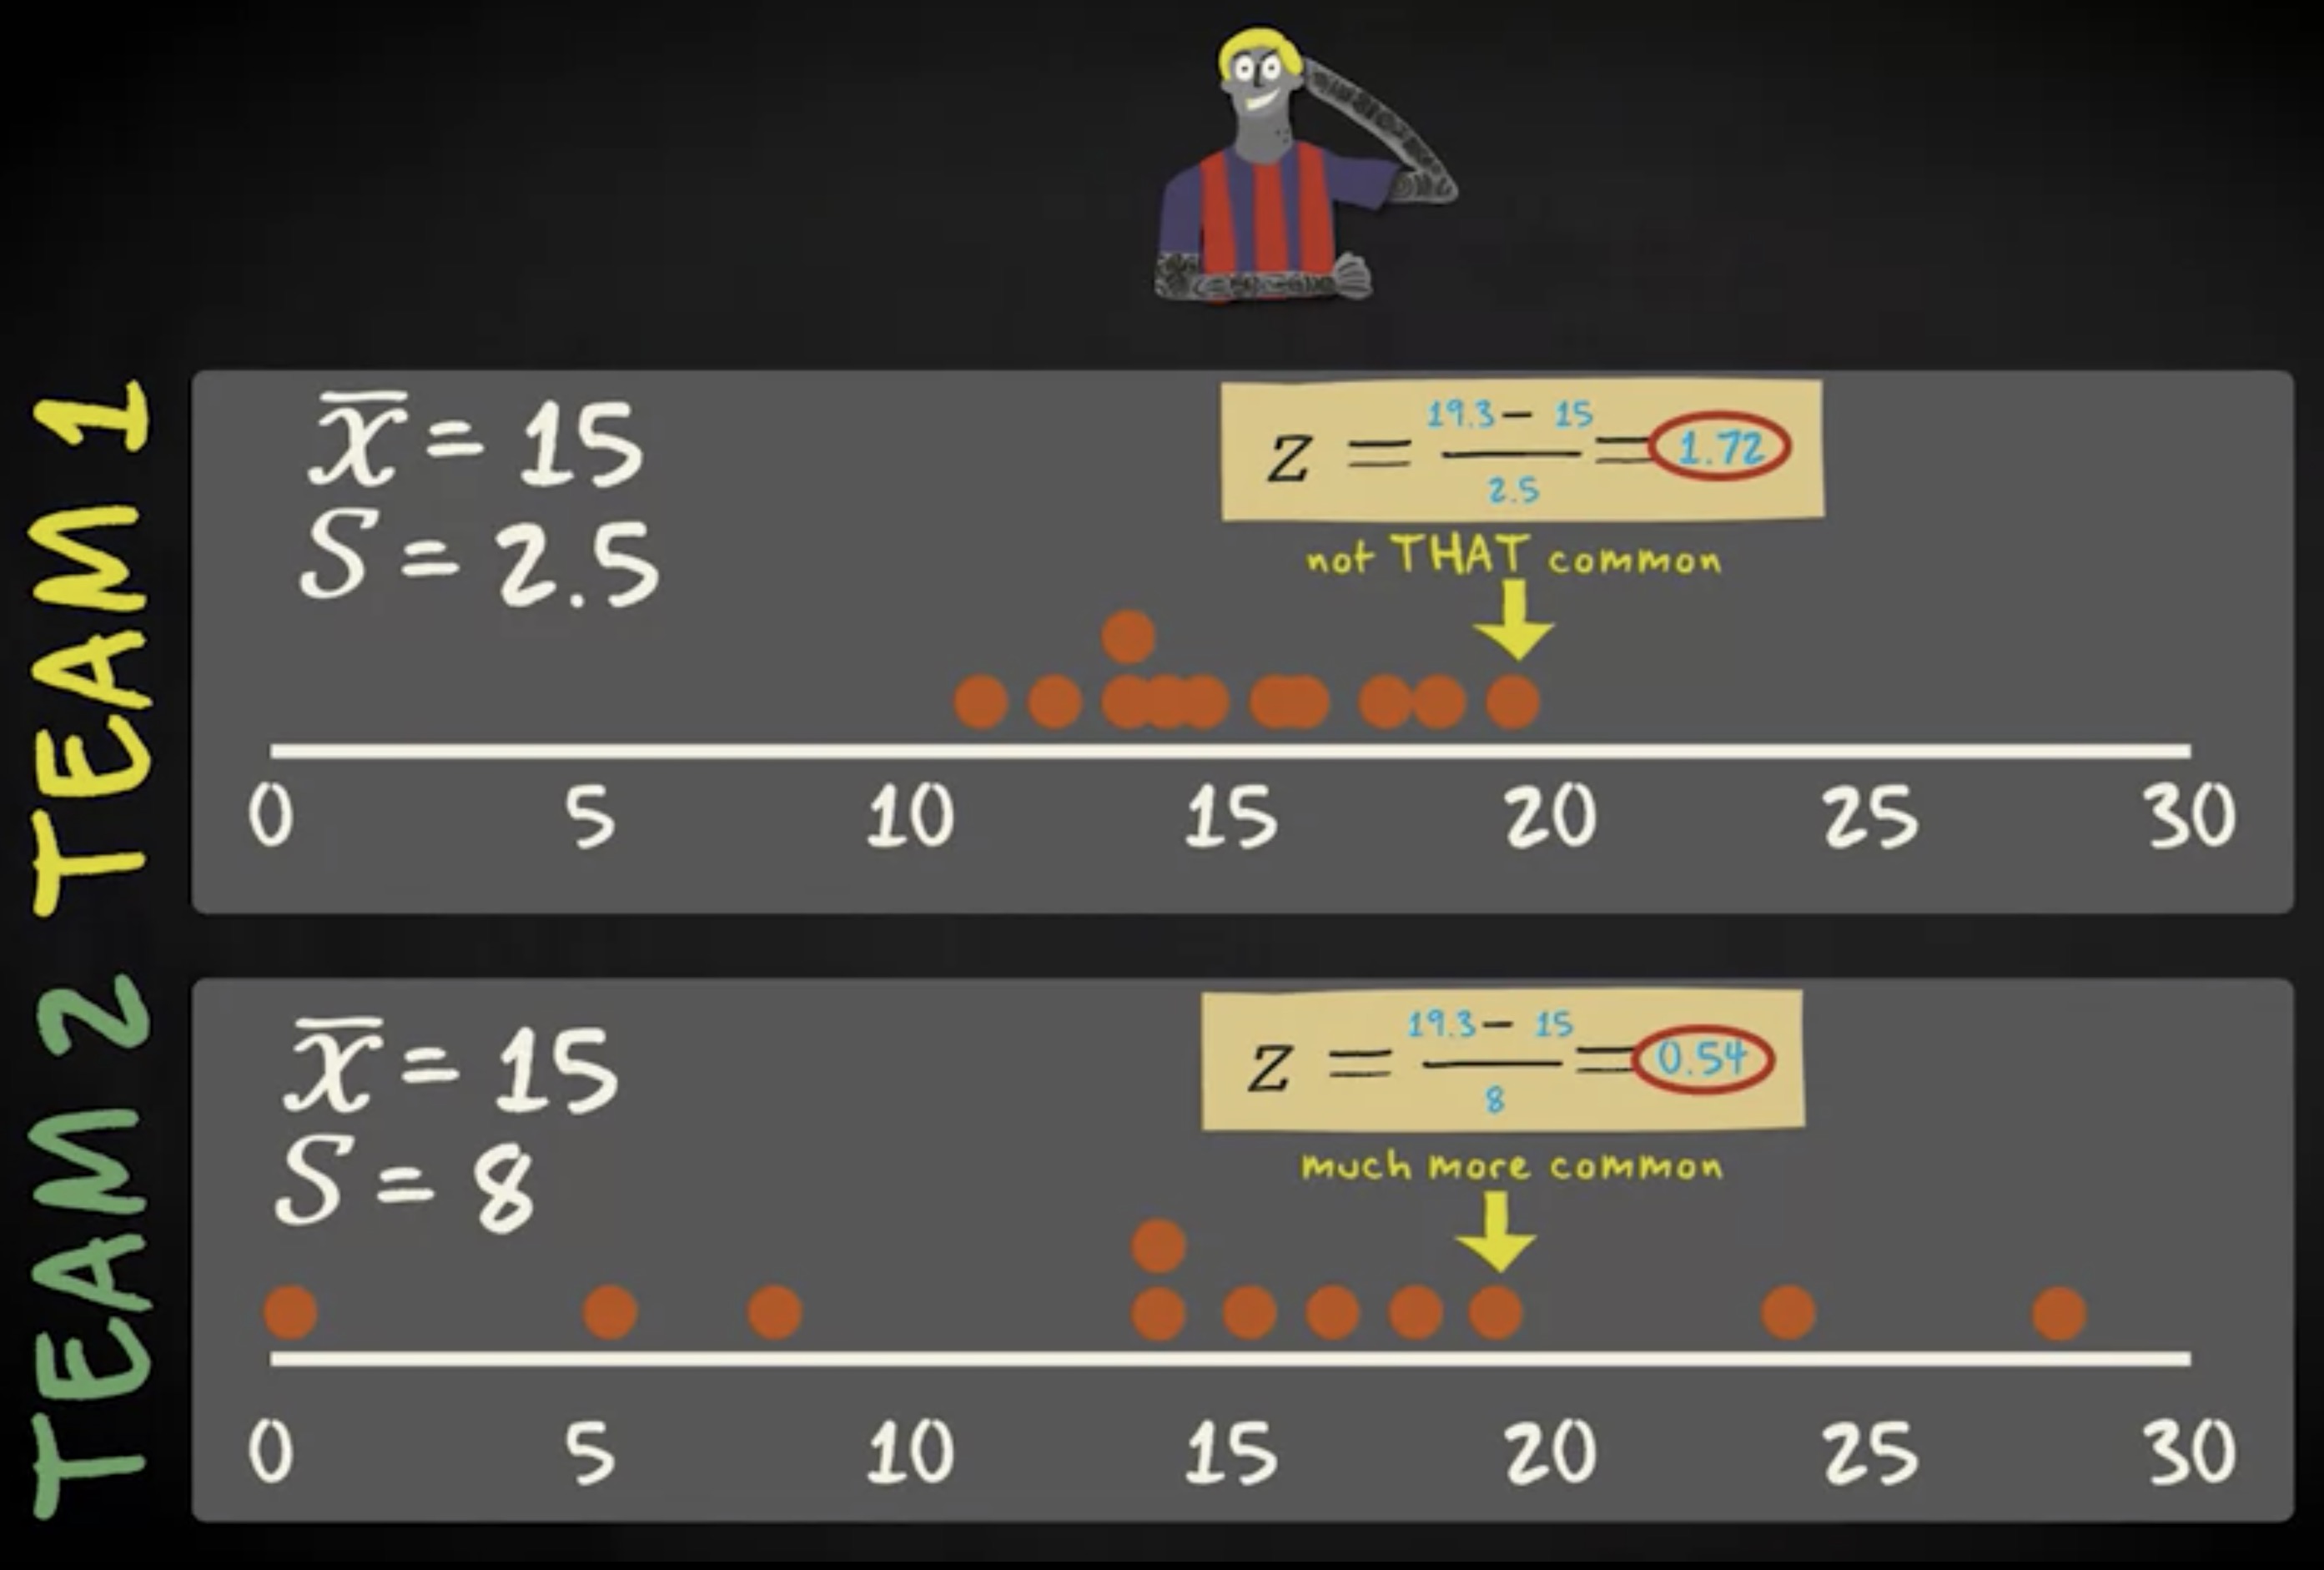 TEAM 1
x̄ = 15
S = 2.5
z = 19.3 - 15 / 2.5 = 1.72
not THAT common
0 5 10 15 20 25 30
TEAM 2
x̄ = 15
S = 8
z = 19.3 - 15 / 8 = 0.54
much more common
0 5 10 15 20 25 30